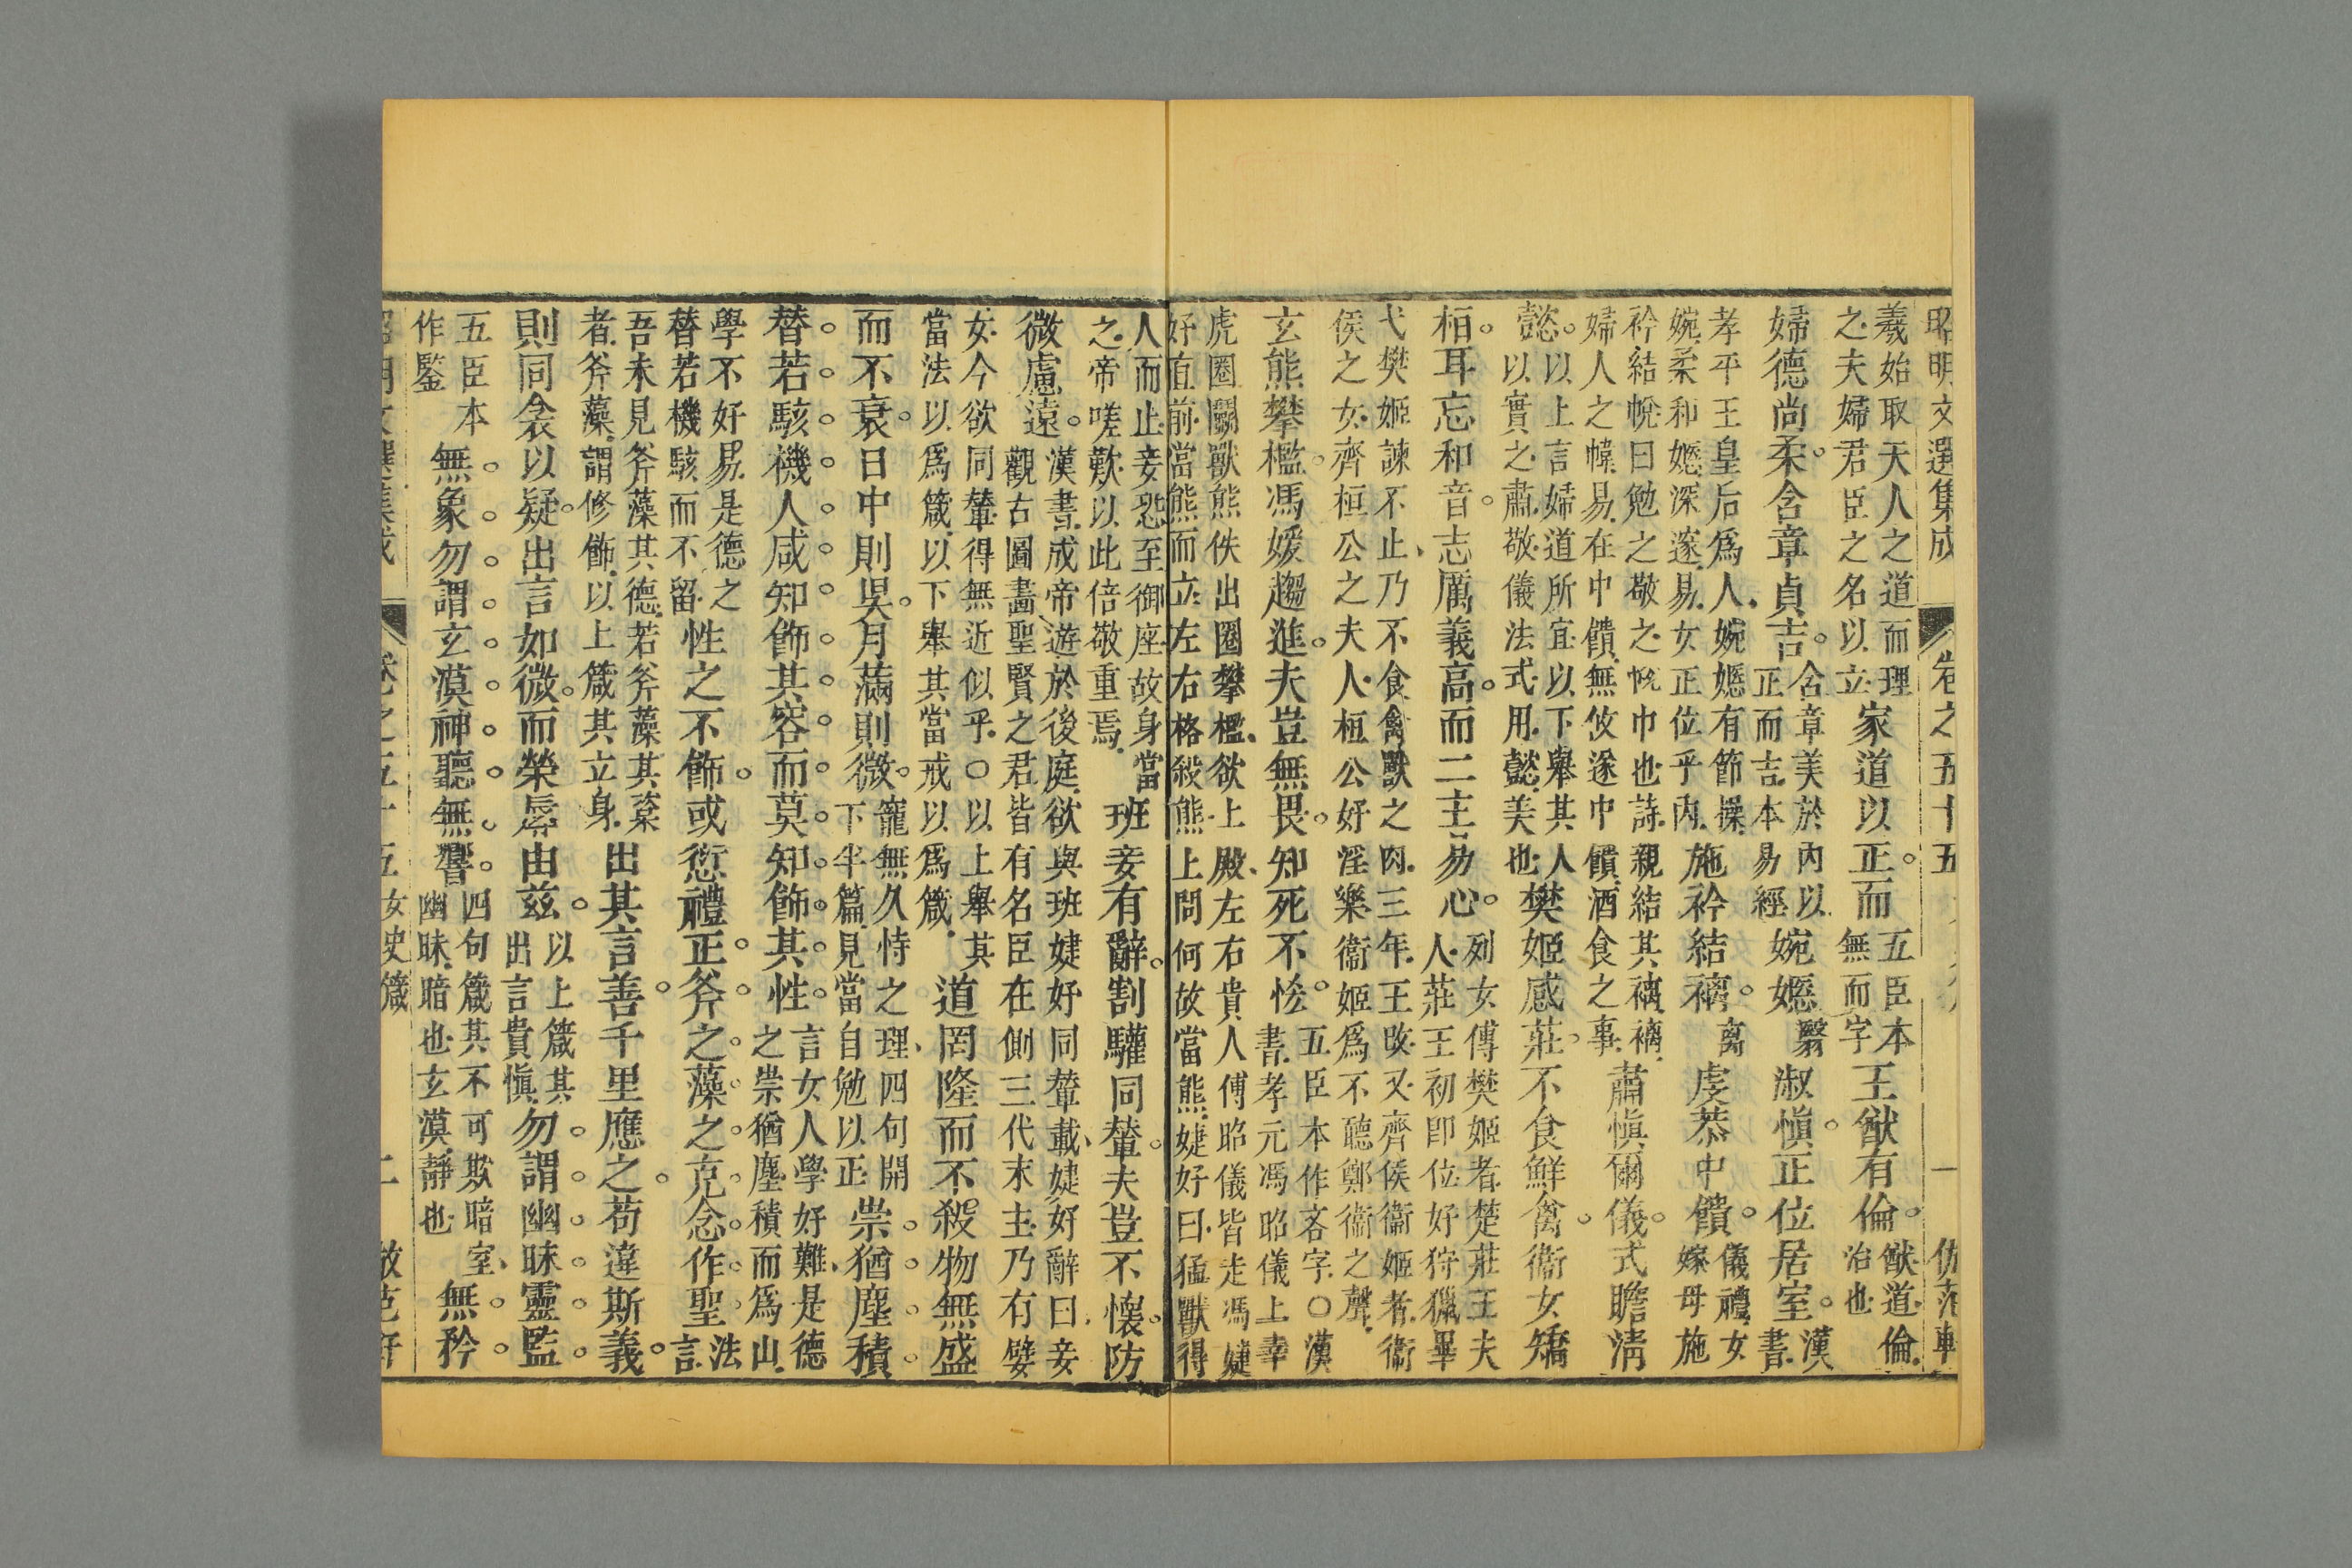 昭明文選集成 卷之五十五 一
羲始取天人之道而理
之夫婦君臣之名以立
家道以正而
五臣本
無而字
王猷有倫
猷道倫
治也
婦德尚柔含章貞吉
含章美於内以
正而吉本易經
婉嫕
翳
淑慎正位居室
漢
書
孝平王皇后為人婉嫕有節操
婉柔和嫕深邃易女正位乎内
施衿結褵
离
虔恭中饋
儀禮女
嫁母施
衿結帨曰勉之敬之帨巾也詩親結其褵褵
婦人之幃易在中饋無攸遂中饋酒食之事
肅慎爾儀式瞻清
懿
以上言婦道所宜以下舉其人
以實之肅敬儀法式用懿美也
樊姬感莊不食鮮禽衞女矯
桓耳忘和音志厲義高而二主易心
列女傳樊姬者楚莊王夫
人莊王初即位好狩獵畢
弋樊姬諫不止乃不食禽獸之肉三年王改又齊侯衞姬者衞
侯之女齊桓公之夫人桓公好淫樂衞姬為不聽鄭衞之聲
玄熊攀檻馮媛趨進夫豈無畏知死不恡
五臣本作吝字○漢
書孝元馮昭儀上幸
虎圈鬭獸熊佚出圈攀檻欲上殿左右貴人傅昭儀皆走馮婕
妤直前當熊而立左右格殺熊上問何故當熊婕妤曰猛獸得
人而止妾恐至御座故身當
之帝嗟歎以此倍敬重焉
班妾有辭割驩同輦夫豈不懷防
微慮遠
漢書成帝遊於後庭欲與班婕妤同輦載婕妤辭曰妾
觀古圖畫聖賢之君皆有名臣在側三代末主乃有嬖
女今欲同輦得無近似乎○以上舉其
當法以為箴以下舉其當戒以為箴
道罔隆而不殺物無盛
而不衰日中則昃月滿則微
寵無久恃之理四句開
下半篇見當自勉以正
崇猶塵積
替若駭機人咸知飾其容而莫知飾其性
言女人學好難是德
之崇猶塵積而為山
學不好易是德之
替若機駭而不留
性之不飾或愆禮正斧之藻之克念作聖
法
言
吾未見斧藻其德若斧藻其楶
者斧藻謂修飾以上箴其立身
出其言善千里應之苟違斯義
則同衾以疑出言如微而榮辱由茲
以上箴其
出言貴慎
勿謂幽昧靈監
五臣本
作鑒
無象勿謂玄漠神聽無響
四句箴其不可欺暗室
幽昧暗也玄漠靜也
無矜
卷之五十五 女史箴 二